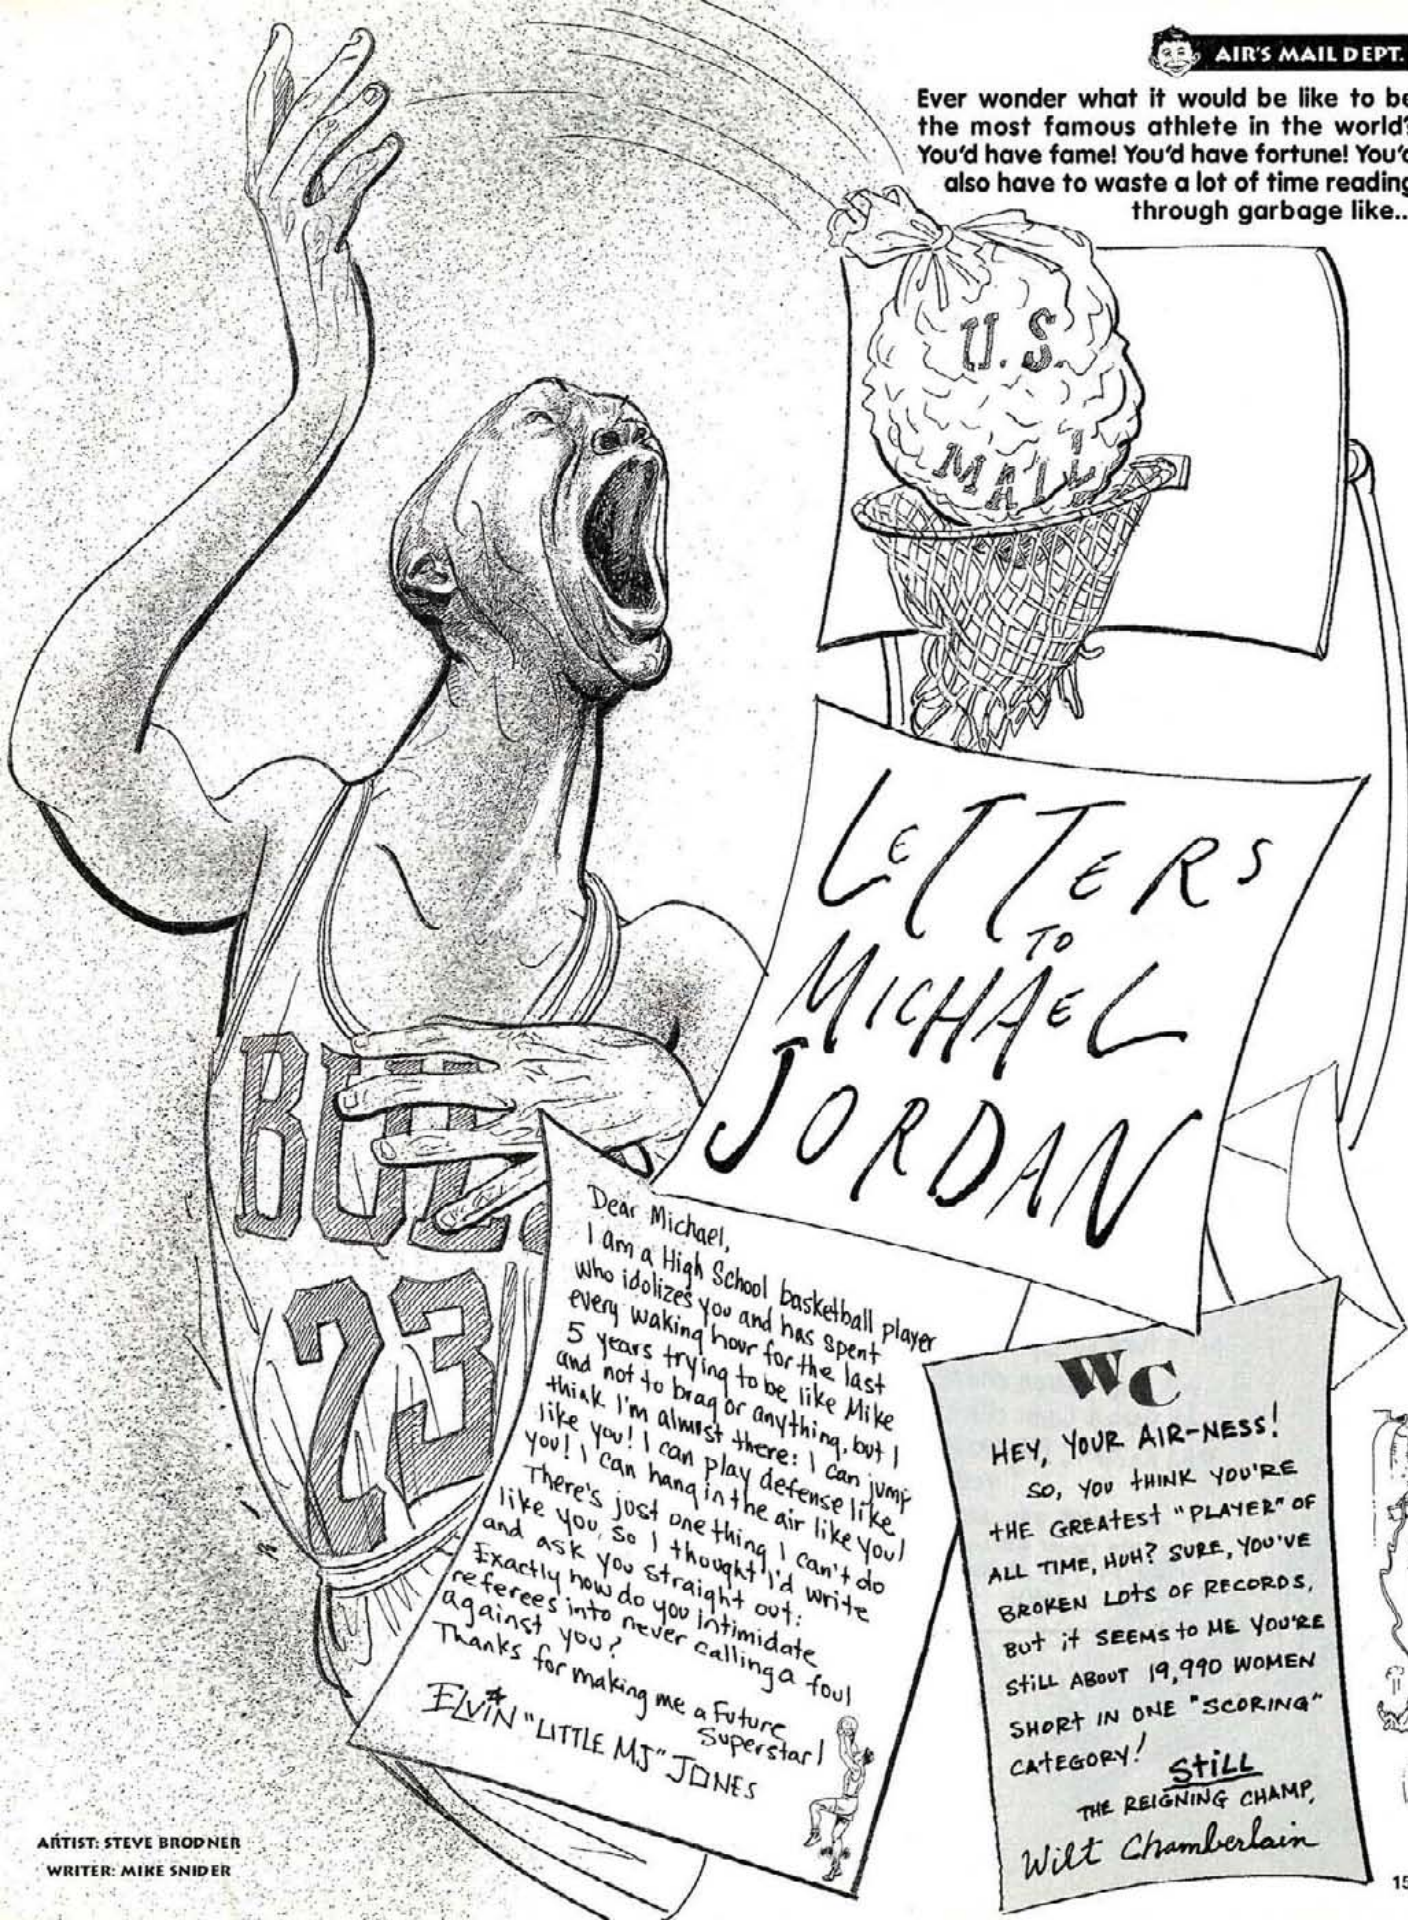 AIR'S MAIL DEPT.
Ever wonder what it would be like to be
the most famous athlete in the world?
You'd have fame! You'd have fortune! You'd
also have to waste a lot of time reading
through garbage like..
U.S.
MAIL
LETTERS
TO
MICHAEL
JORDAN
BUL
23
Dear Michael,
I am a High School basketball player
who idolizes you and has spent
every waking hour for the last
5 years trying to be like Mike
and not to brag or anything, but I
think I'm almost there: I can jump
like you! I can play defense like
you! I can hang in the air like you!
There's just one thing I can't do
like you, so I thought I'd write
and ask you straight out:
Exactly how do you intimidate
referees into never calling a foul
against you?
Thanks for making me a Future
Superstar!
ELVIN "LITTLE MJ" JONES
WC
HEY, YOUR AIR-NESS!
SO, YOU THINK YOU'RE
THE GREATEST "PLAYER" OF
ALL TIME, HUH? SURE, YOU'VE
BROKEN LOTS OF RECORDS,
BUT IT SEEMS TO ME YOU'RE
STILL ABOUT 19,990 WOMEN
SHORT IN ONE "SCORING"
CATEGORY!
STILL
THE REIGNING CHAMP,
Wilt Chamberlain
ARTIST: STEVE BRODNER
WRITER: MIKE SNIDER
15